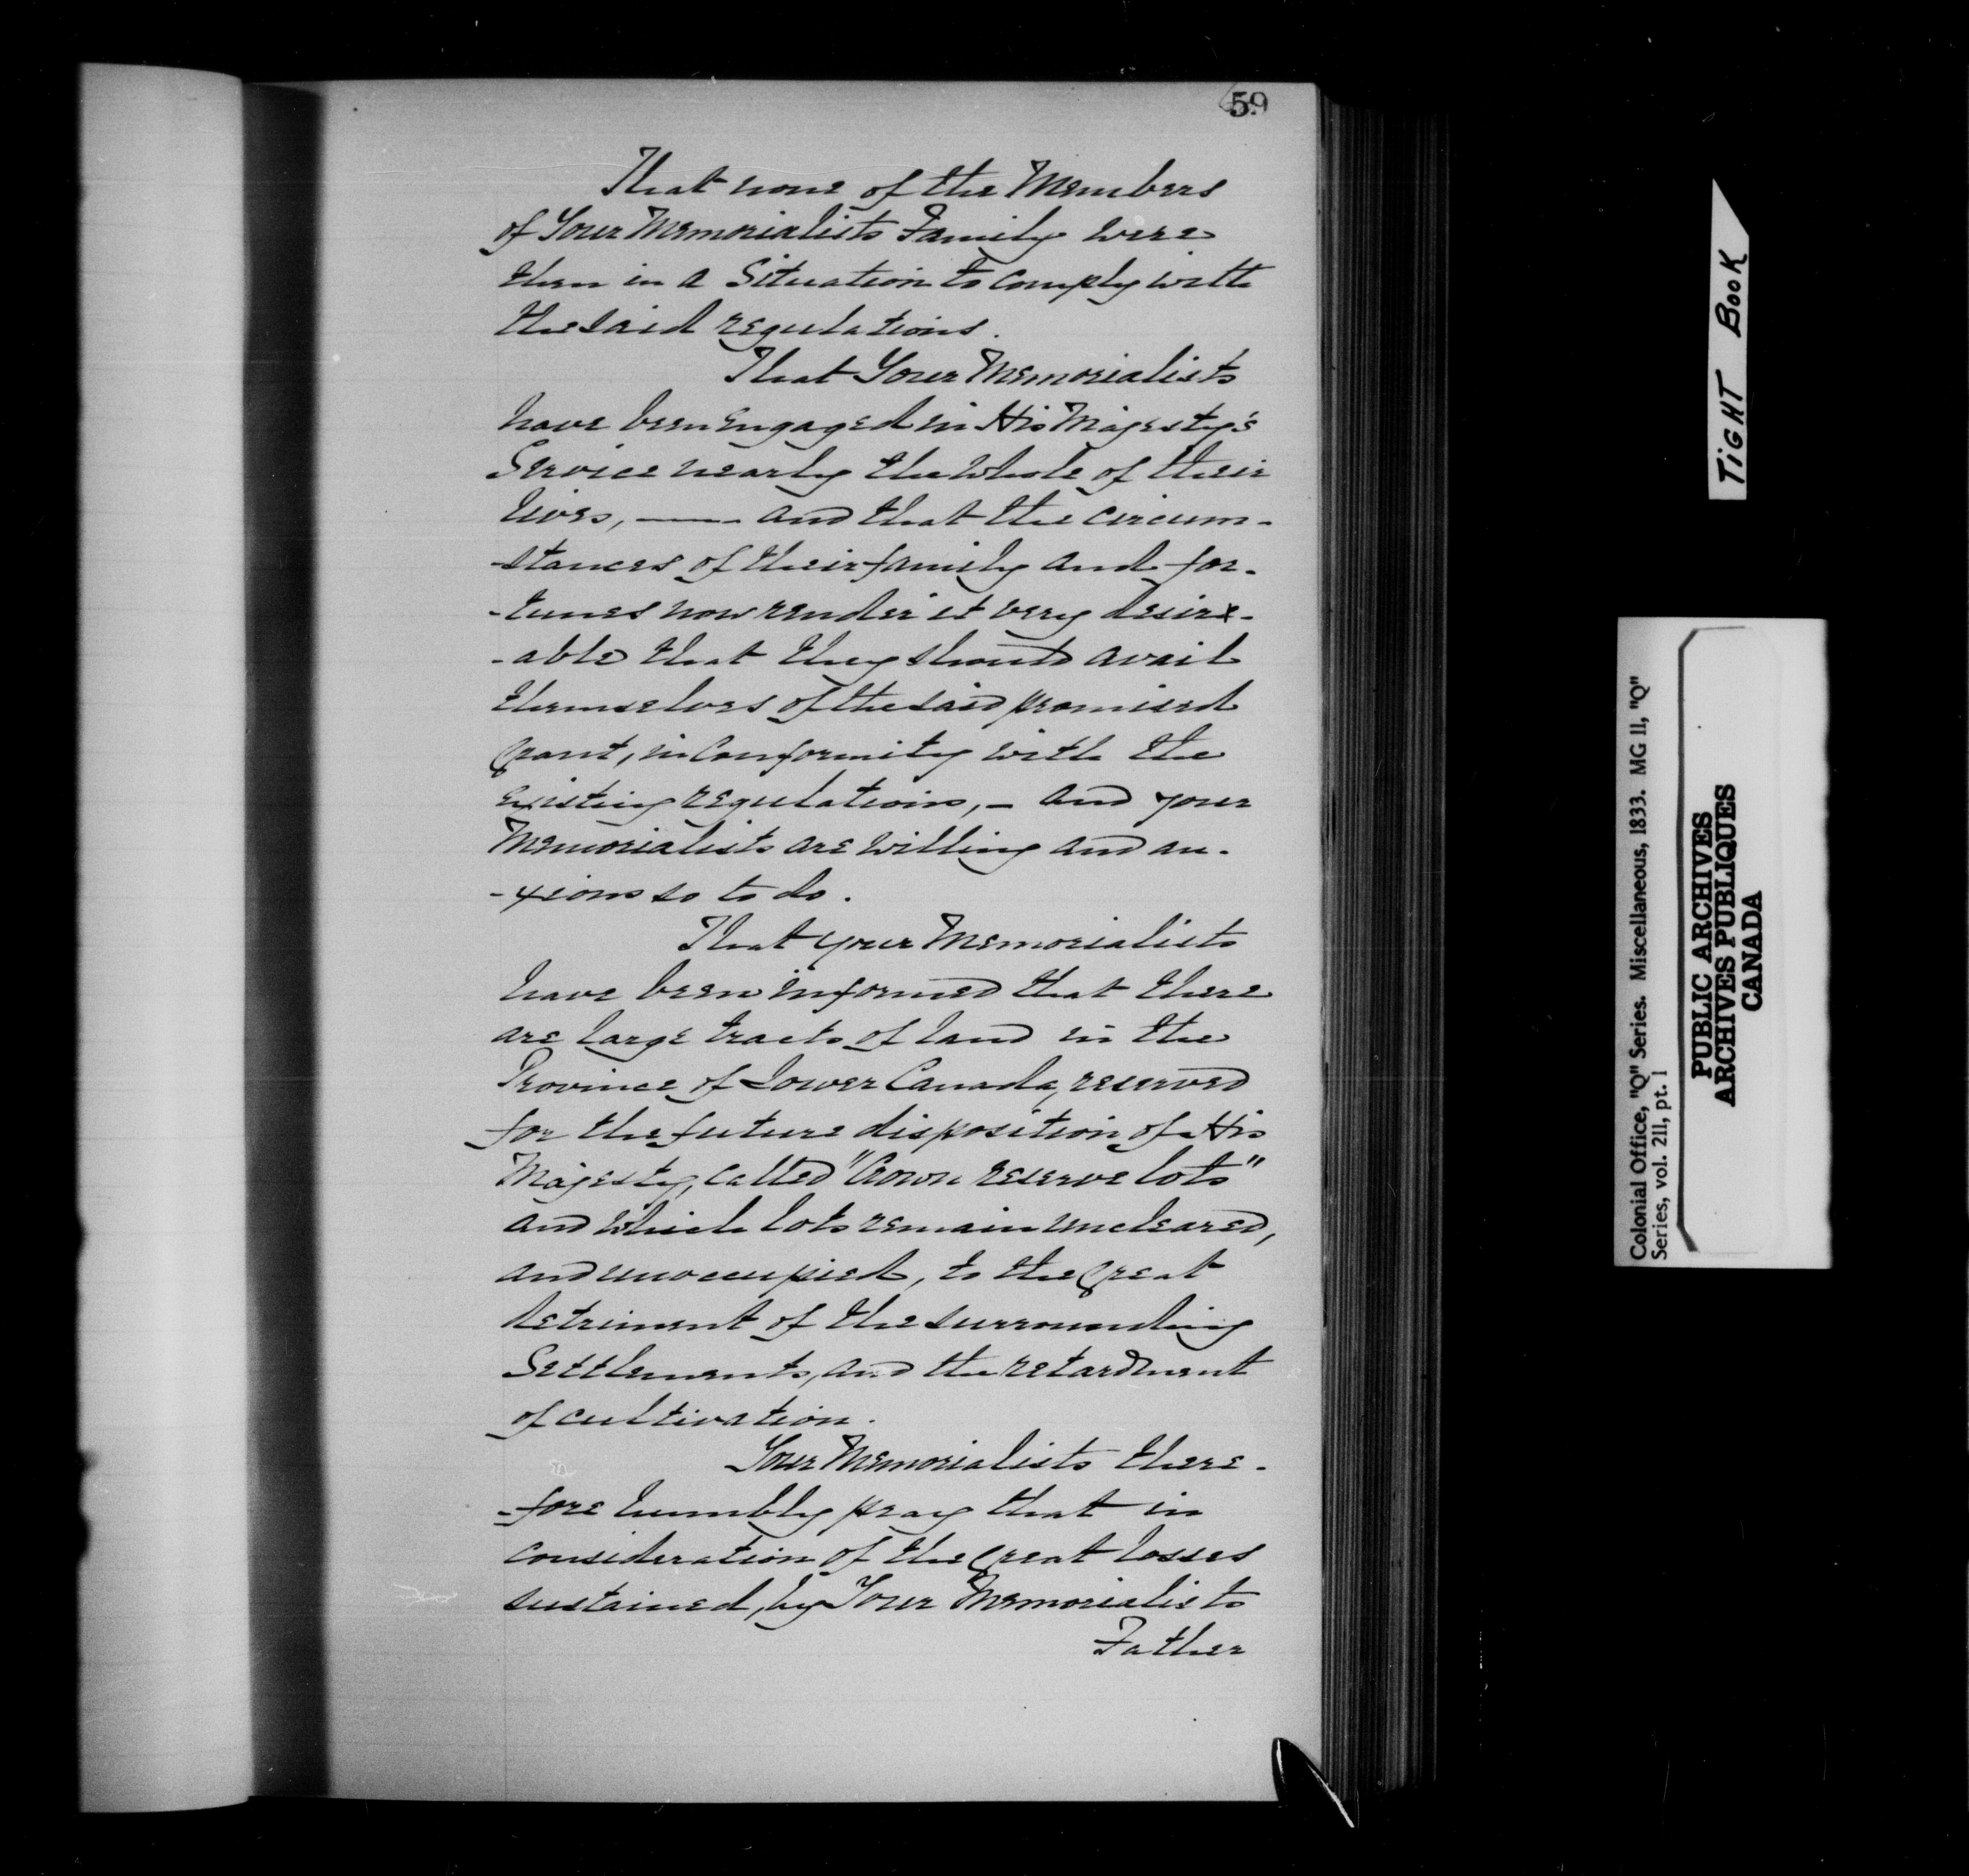 59
That none of the Members
of Your Memorialists Family were
then in a Situation to comply with
the said regulations.
That Your Memorialists
have been engaged in His Majesty's
Service nearly the whole of their
lives, —— and that the circum-
-stances of their family and for-
-tunes now render it very desir-
-able that they should avail
themselves of the said promised
Grant, in Conformity with the
existing regulations, — and your
Memorialists are willing and an-
-xious so to do.
That your Memorialists
have been informed that there
are large tracts of land in the
Province of Lower Canada, reserved
for the future disposition of His
Majesty, called "Crown reserve lots"
and which lots remain uncleared,
and unoccupied, to the Great
detriment of the surrounding
Settlements, and the retardment
of cultivation.
Your Memorialists there-
-fore humbly pray that in
consideration of the Great losses
sustained, by Your Memorialists
Father
TIGHT BOOK
Colonial Office, "Q" Series. Miscellaneous, 1833. MG 11, "Q"
Series, vol. 211, pt. 1
PUBLIC ARCHIVES
ARCHIVES PUBLIQUES
CANADA